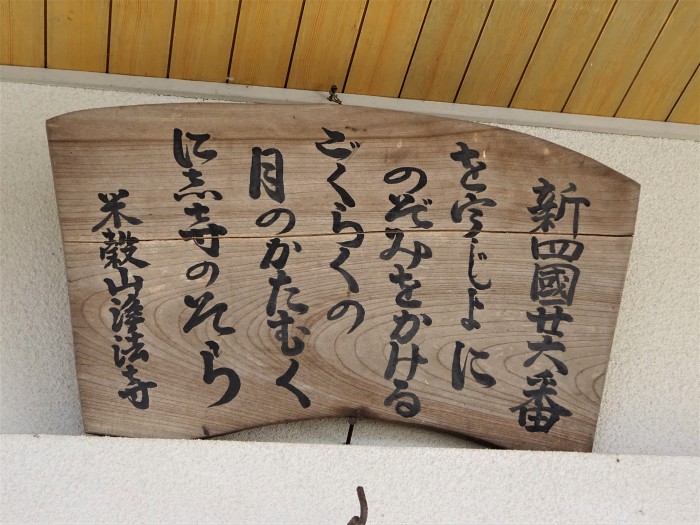 新四國廿六番
を宇じよに
のぞみをかける
ごくらくの
月のかたむく
に志寺のそら
米穀山淨法寺